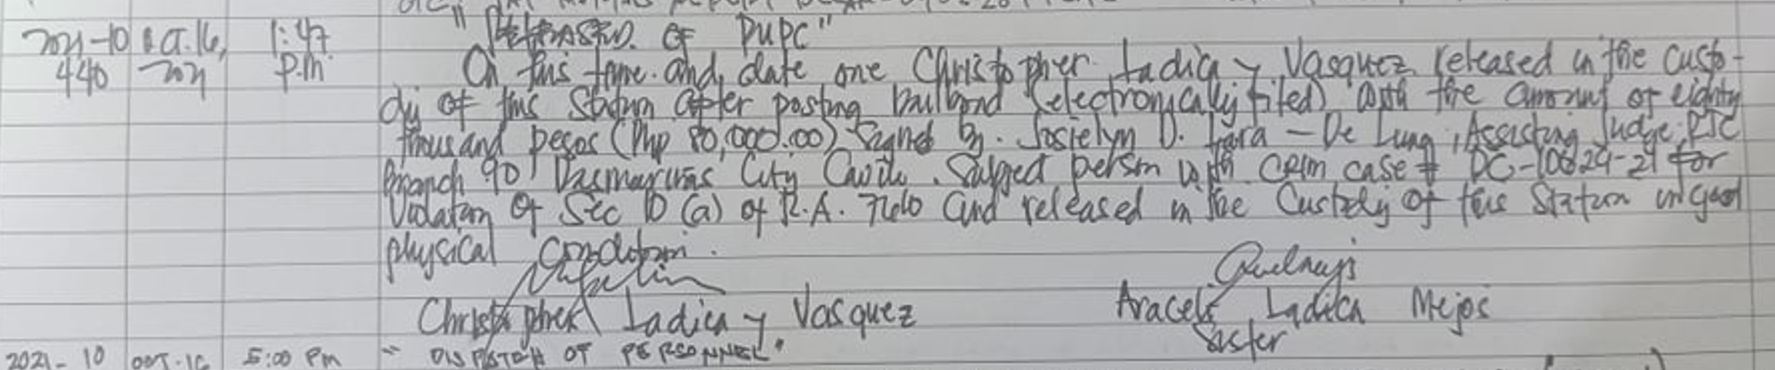 "RELEASED OF PUPC"
2021-10 Oct. 16, 1:47 On this time and date one Christopher Ladica y Vasquez released in the custo-
440 2021 P.M dy of this Station after posting bailbond (electronically filed) with the amount of eighty
thousand pesos (Php 80,000.00) signed by. Josielyn D. Lara - De Luna, Assisting Judge, RTC
Branch 90, Dasmarinas City Cavite. Subject person with crim case # DC-10624-21 for
Violation of Sec 10 (a) of R.A. 7610 and released in the Custody of this Station in good
physical condition.
Christopher Ladica y Vasquez Araceli Ladica Mejos
Sister
2021-10 OCT.16 5:00 PM "DISPATCH OF PERSONNEL"